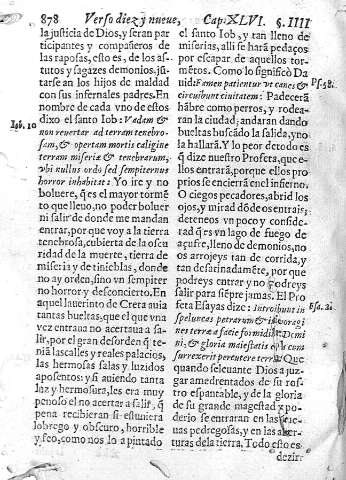 878 Verso diez y nueue, Cap. XLVI. §. IIII
la justicia de Dios, y seran par
ticipantes y compañeros de
las raposas, esto es, de los as-
tutos y sagazes demonios, jū-
tarse an los hijos de maldad
con sus infernales padres. En
nombre de cada vno de estos
dixo el santo Iob: Vadam &
Iob. 10
non reuertar ad terram tenebro-
sam, & opertam mortis caligine
terram miseriæ & tenebrarum,
vbi nullus ordo sed sempiternus
horror inhabitat: Yo ire y no
boluere, que es el mayor tormē
to que lleuo, no poder boluer
ni salir de donde me mandan
entrar, por que voy a la tierra
tenebrosa, cubierta de la oscu
ridad de la muerte, tierra de
miseria y de tinieblas, donde
no ay orden, sino vn sempiter
no horror y desconcierto. En
aquel lauerinto de Creta auia
tantas bueltas, que el que vna
vez entraua no acertaua a sa-
lir, por el gran desorden q̄ te-
nia las calles y reales palacios,
las hermosas salas y luzidos
aposentos: y si auiendo tanta
luz y hermosura, les era muy
penoso el no acertar a salir, q̄
pena recibieran si estuuiera
lobrego y obscuro, horrible
y feo, como nos lo a pintado
el santo Iob, y tan lleno de
miserias, alli se hará pedaços
por escapar de aquellos tor-
mētos. Como lo significò Da
uid: Famem patientur vt canes &
Ps. 58.
circuibunt ciuitatem: Padecerā
hābre como perros, y rodea-
ran la ciudad; andaran dando
bueltas buscādo la salida, y no
la hallarā. Y lo peor de todo es
q̄ dize nuestro Profeta, que e-
llos entrarā, porque ellos pro
prios se encierrā en el infierno.
O ciegos pecadores, abrid los
ojos, y mirad dōde os entrais;
deteneos vn poco y conside-
rad q̄ es vn lago de fuego de
açufre, lleno de demonios, no
os arrojeys tan de corrida, y
tan desatinadamēte, por que
podreys entrar y no podreys
salir para siēpre jamas. El Pro
feta Esayas dize: Introibunt in
Esa. 2.
speluncas petrarum & in voragi
nes terræ a facie formidinis Domi
ni, & gloria maiestatis eius cum
surrexerit percutere terram. Que
quando se leuante Dios a juz-
gar amedrentados de su ros-
tro espantable, y de la gloria
de su grande magestad y po-
derio se entraran en las cue-
uas pedregosas, y en las aber-
turas de la tierra. Todo esto es
dezir